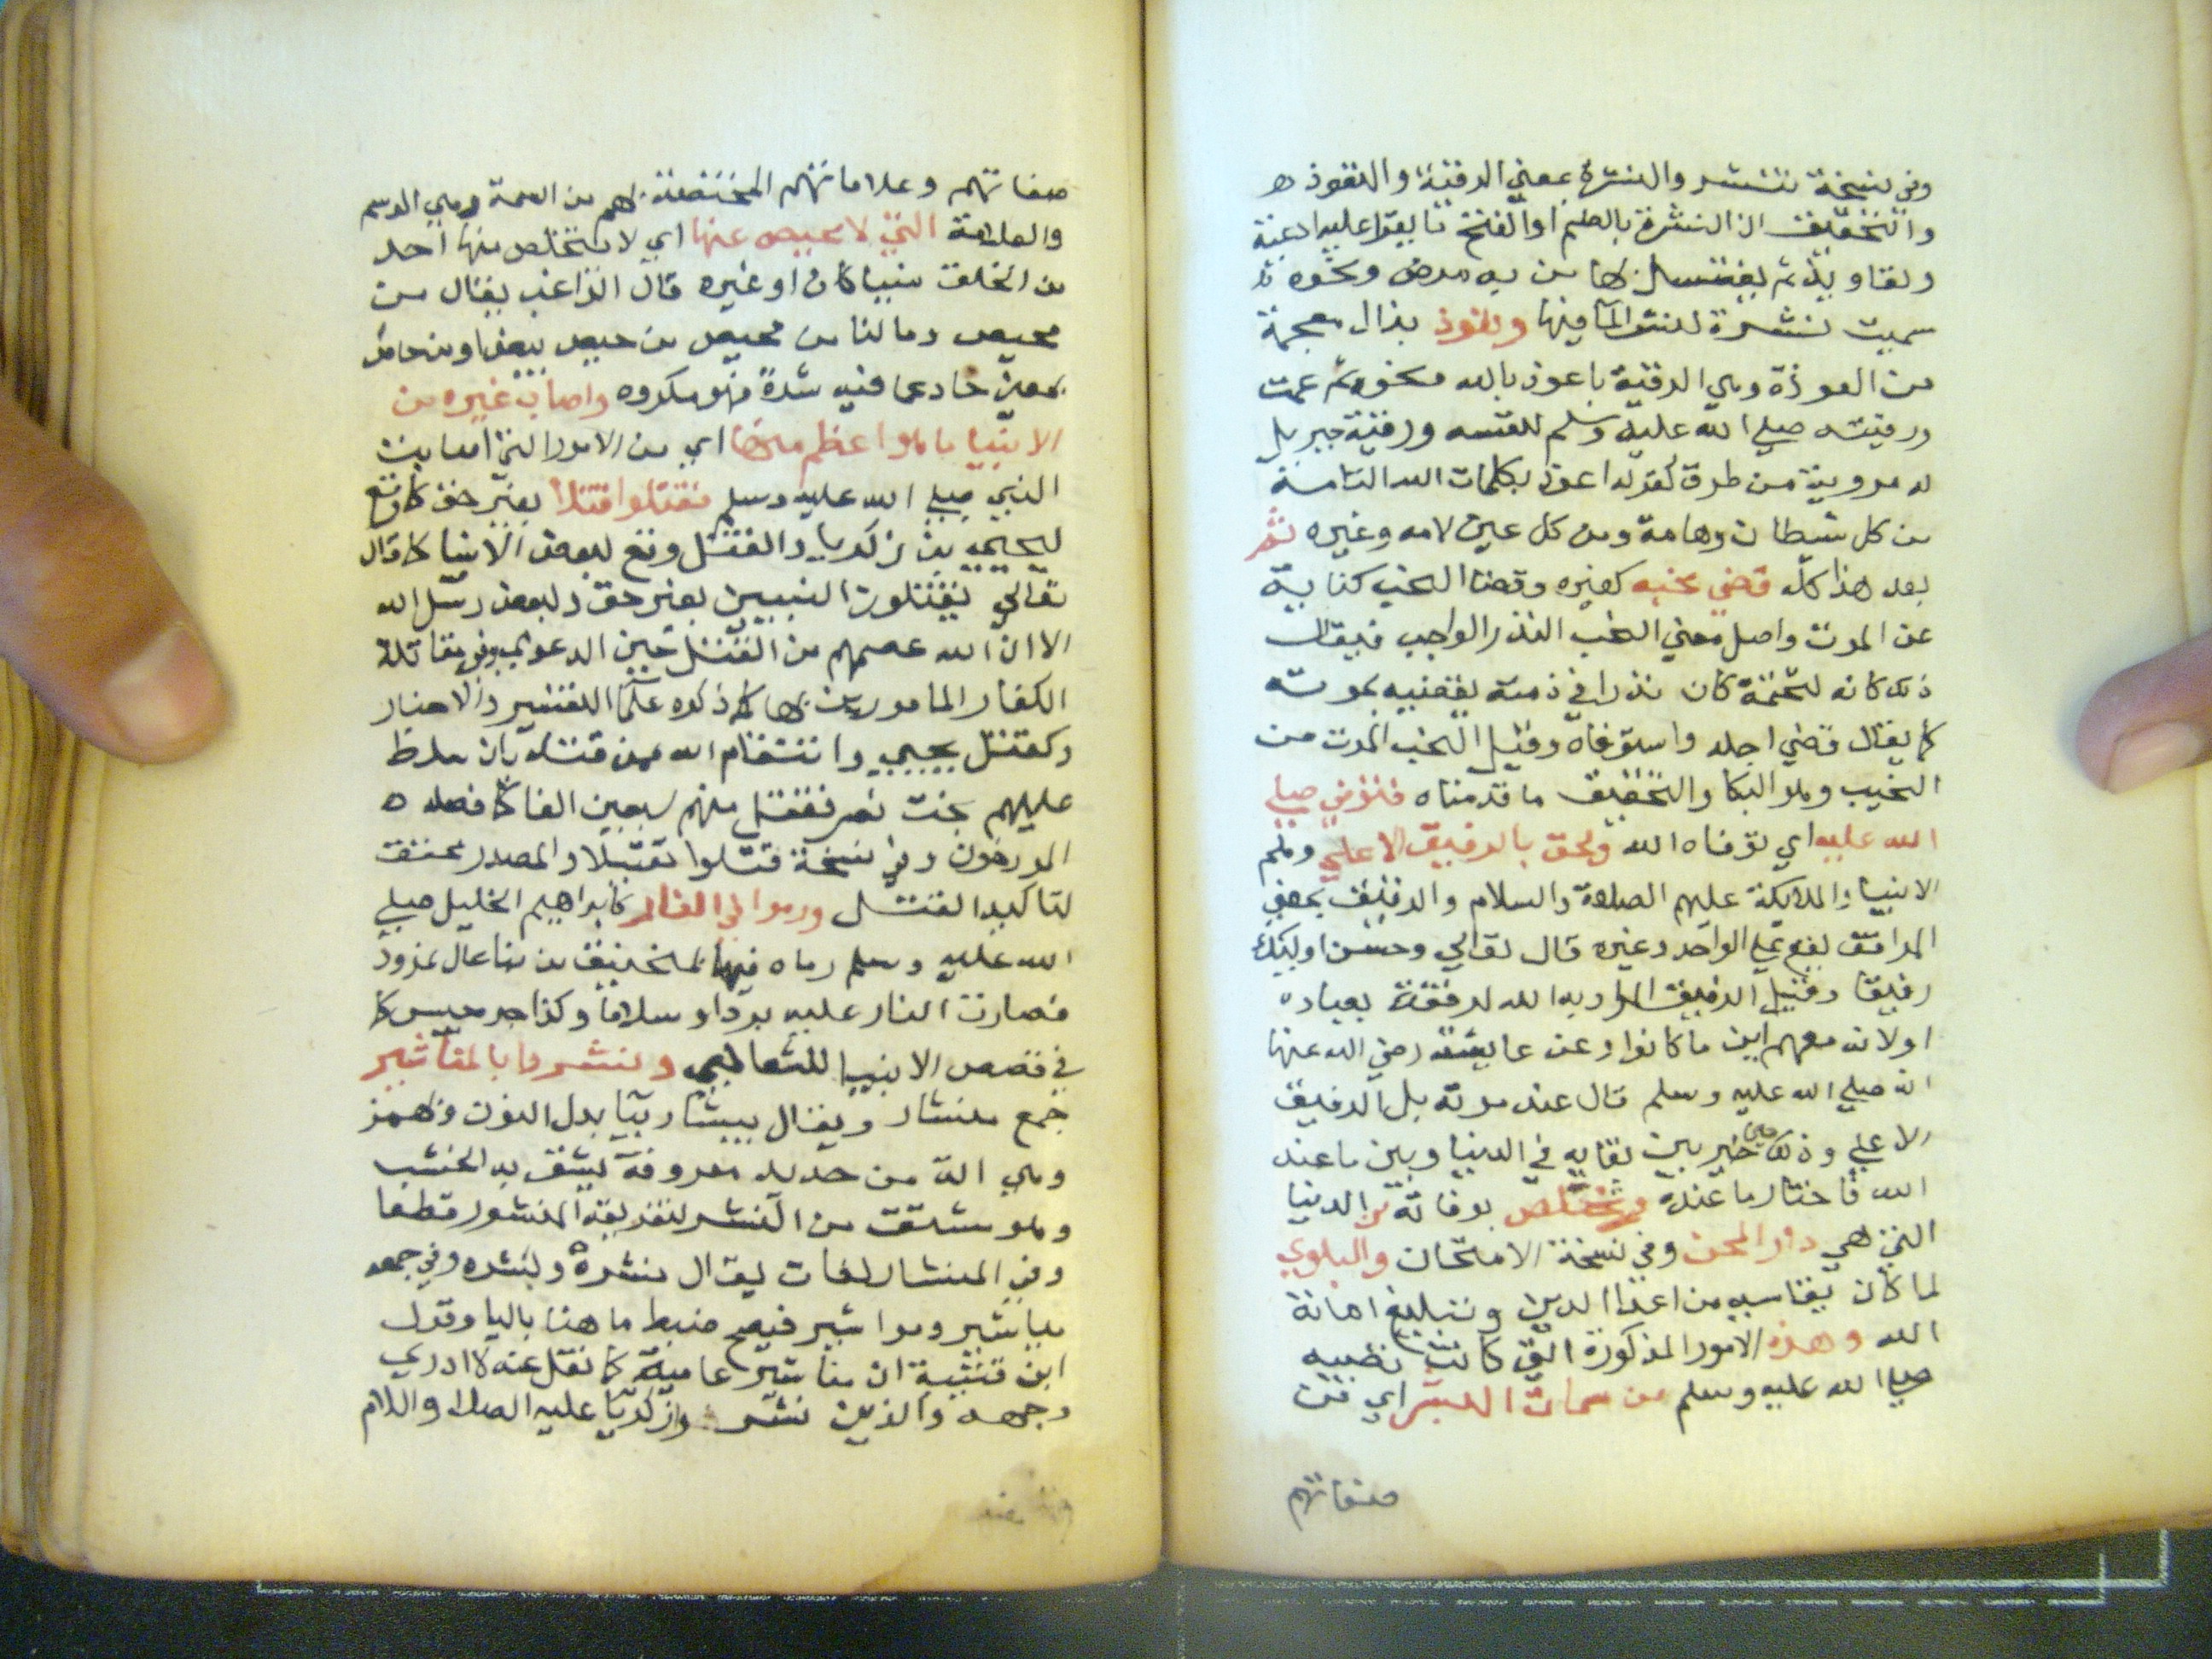 وفي نسخة تنشر والنشرة بمعني الرقية والتعوذ
والتحقيق ان النشرة بالضم او الفتح ما يقرا عليه ادعية
وتعاويذ ثم يغتسل بها من به مرض ونحوه
سميت نشرة لنشر الما فيها وتعوذ بذال معجمة
من العوذة وهي الرقية باعوذ بالله ونحوه ثم عمت
ورقيته صلي الله عليه وسلم لنفسه ورقية جبريل
له مروية من طرق كقوله اعوذ بكلمات الله التامة
من كل شيطان وهامة ومن كل عين لامه وغيره ثم
بعد هذا كله قضي نحبه كغيره وقضا النحب كناية
عن الموت واصل معني النحب النذر الواجب فيقال
ذلك كانه لتحتمه كان نذرا في ذمته يقضيه بموته
كما يقال قضي اجله واستوفاه وقيل النحب الموت من
النحيب وهو البكا والتحقيق ما قدمناه فتوفي صلي
الله عليه اي توفاه الله ولحق بالرفيق الاعلي وهم
الانبيا والملايكة عليهم الصلاة والسلام والرفيق بمعني
المرافق يقع علي الواحد وغيره قال تعالي وحسن اوليك
رفيقا وقيل الرفيق المراد به الله لرفقه بعباده
اولانه معهم اين ما كانوا وعن عايشة رضي الله عنها
انه صلي الله عليه وسلم قال عند موته بل الرفيق
الاعلي وذلك حين خير بين بقايه في الدنيا وبين ما عند
الله فاختار ما عنده وتخلص بوفاته من الدنيا
التي هي دار المحن وفي نسخة الامتحان والبلوي
لما كان يقاسيه من اعدا الدين وتبليغ امانة
الله وهذه الامور المذكورة التي كانت تصيبه
صلي الله عليه وسلم من سمات البشر اي من
صفاتهم
صفاتهم وعلاماتهم المختصة بهم من السمة وهي الوسم
والعلامة التي لا محيص عنها اي لا يتخلص منها احد
من الخلق نبيا كان او غيره قال الراغب يقال من
محيص وما لنا من محيص من حيص بيص او من حاص
بمعني حاد عما فيه شدة فهو مكروه واصاب غيره من
الانبيا ما هو اعظم منها اي من الامور التي اصابت
النبي صلي الله عليه وسلم فقتلوا قتلا بغير حق كما وقع
ليحيي بن زكريا والقتل وقع لبعض الانبيا كما قال
تعالي يقتلون النبيين بغير حق ولبعض رسل الله
الا ان الله عصمهم من القتل حين الدعوي وفي مقاتلة
الكفار المامورين بها كما ذكره علما التفسير والاخبار
وكقتل يحيي وانتقام الله ممن قتله بان سلط
عليهم بخت نصر فقتل منهم سبعين الفا كما فصله
المورخون وفي نسخة قتلوا تقتيلا والمصدر محقق
لتاكيد القتل ورموا في النار كابراهيم الخليل صلي
الله عليه وسلم رماه فيها بمنجنيق من صناعات نمرود
فصارت النار عليه بردا وسلاما وكذا جرجيس كما
في قصص الانبيا للثعالبي ونشروا بالمناشير
جمع منشار ويقال ميشار بيا بدل النون وبهمز
وهي الة من حديد معروفة يشق به الخشب
وهو مشتق من النشر لتفريقه المنشور قطعا
وفي المنشار لغات يقال نشره وينشره وفي جمعه
مياشير ومواشير فيصح ضبط ما هنا باليا وقول
ابن قتيبة ان مناشير عامية كما نقل عنه لا ادري
وجهه والذين نشر زكريا عليه الصلاة والسلام